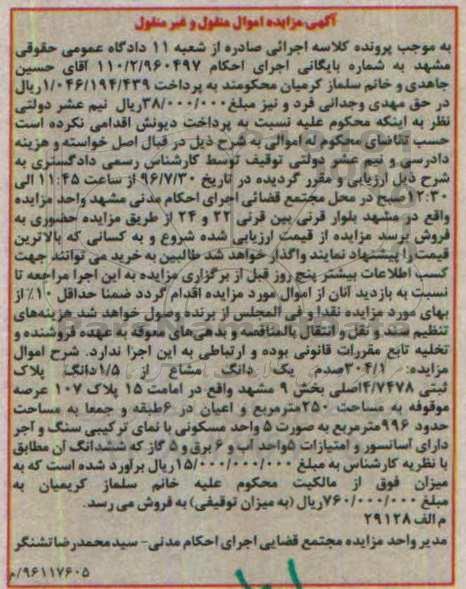 آگهی مزایده اموال منقول و غیر منقول
به موجب پرونده کلاسه اجرائی صادره از شعبه ۱۱ دادگاه عمومی حقوقی
مشهد به شماره بایگانی اجرای احکام ۱۱۰/۲/۹۶۰۴۹۷ آقای حسین
جاهدی و خانم سلماز کرمیان محکومند به پرداخت ۱/۰۴۶/۱۹۴/۴۳۹ریال
در حق مهدی وجدانی فرد و نیز مبلغ ۳۸/۰۰۰/۰۰۰ریال نیم عشر دولتی
نظر به اینکه محکوم علیه نسبت به پرداخت دیونش اقدامی نکرده است
حسب تقاضای محکوم له اموالی به شرح ذیل در قبال اصل خواسته و هزینه
دادرسی و نیم عشر دولتی توقیف توسط کارشناس رسمی دادگستری به
شرح ذیل ارزیابی و مقرر گردیده در تاریخ ۹۶/۷/۳۰ از ساعت ۱۱:۴۵ الی
۱۲:۳۰صبح در محل مجتمع قضائی اجرای احکام مدنی مشهد واحد مزایده
واقع در مشهد بلوار قرنی بین قرنی ۲۲ و ۲۴ از طریق مزایده حضوری به
فروش برسد مزایده از قیمت ارزیابی شده شروع و به کسانی که بالاترین
قیمت را پیشنهاد نمایند واگذار خواهد شد طالبین به خرید می توانند جهت
کسب اطلاعات بیشتر پنج روز قبل از برگزاری مزایده به این اجرا مراجعه تا
نسبت به بازدید آنان از اموال مورد مزایده اقدام گردد ضمنا حداقل ۱۰٪ از
بهای مورد مزایده نقدا و فی المجلس از برنده وصول خواهد شد هزینه‌های
تنظیم سند و نقل و انتقال بالمناقصه و بدهی‌های معوقه به عهده فروشنده و
تخلیه تابع مقررات قانونی بوده و ارتباطی به این اجرا ندارد. شرح اموال
مزایده: ۳۰۴/۱صدم یک دانگ مشاع از ۱/۵دانگ پلاک
ثبتی ۴/۷۴۷۸اصلی بخش ۹ مشهد واقع در امامت ۱۵ پلاک ۱۰۷ عرصه
موقوفه به مساحت ۲۵۰مترمربع و اعیان در ۶طبقه و جمعا به مساحت
حدود ۹۹۶مترمربع به صورت ۵ واحد مسکونی با نمای ترکیبی سنگ و آجر
دارای آسانسور و امتیازات ۵واحد آب و ۶ برق و ۵ گاز که ششدانگ آن مطابق
با نظریه کارشناس به مبلغ ۱۵/۰۰۰/۰۰۰/۰۰۰ریال برآورد شده است که به
میزان فوق از مالکیت محکوم علیه خانم سلماز کریمیان به
مبلغ ۷۶۰/۰۰۰/۰۰۰ریال (به میزان توقیفی) به فروش می رسد.
م الف ۲۹۱۲۸
مدیر واحد مزایده مجتمع قضایی اجرای احکام مدنی- سیدمحمدرضاتشنگر
۹۶۱۱۷۶۰۵/م